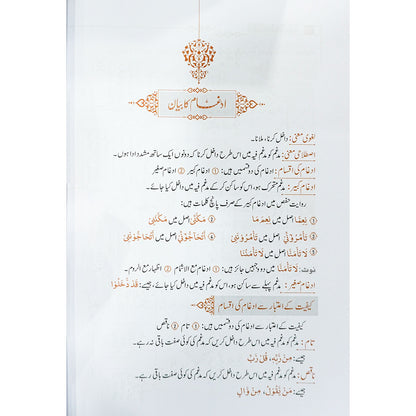 ادغام کا بیان
لغوی معنیٰ: داخل کرنا، ملانا۔
اصطلاحی معنیٰ: مدغم کو مدغم فیہ میں اس طرح داخل کرنا کہ دونوں ایک ساتھ مشدد ادا ہوں۔
ادغام کی اقسام: ادغام کی دو قسمیں ہیں: ① ادغام کبیر ② ادغام صغیر
ادغام کبیر: مدغم متحرک ہو، اس کو ساکن کر کے مدغم فیہ میں داخل کیا جائے۔
روایت حفص میں ادغام کبیر کے صرف پانچ کلمات ہیں:
① نِعِمَّا اصل میں نِعِمَ مَا ② مَكَّنِّي اصل میں مَكَّنَنِي
③ تَأْمُرُوٓنِّي اصل میں تَأْمُرُونَنِي ④ أَتُحَآجُّوٓنِّي اصل میں أَتُحَآجُّونَنِي
⑤ لَا تَأْمَنَّا اصل میں لَا تَأْمَنُنَا
نوٹ: لَا تَأْمَنَّا میں دو وجہیں جائز ہیں: ① ادغام مع الاشمام ② اظہار مع الروم۔
ادغام صغیر: مدغم پہلے سے ساکن ہو، اس کو مدغم فیہ میں داخل کیا جائے، جیسے: قَدْ دَّخَلُوْا
کیفیت کے اعتبار سے ادغام کی اقسام
کیفیت کے اعتبار سے ادغام کی دو قسمیں ہیں: ① تام ② ناقص
تام: مدغم کو مدغم فیہ میں اس طرح داخل کریں کہ مدغم کی کوئی صفت باقی نہ رہے۔
جیسے: مِنْ رَّبِّهِ، قُلْ رَّبِّ
ناقص: مدغم کو مدغم فیہ میں اس طرح داخل کریں کہ مدغم کی کوئی صفت باقی رہے۔
جیسے: مَنْ يَّقُوْلُ، مِنْ وَّالٍ